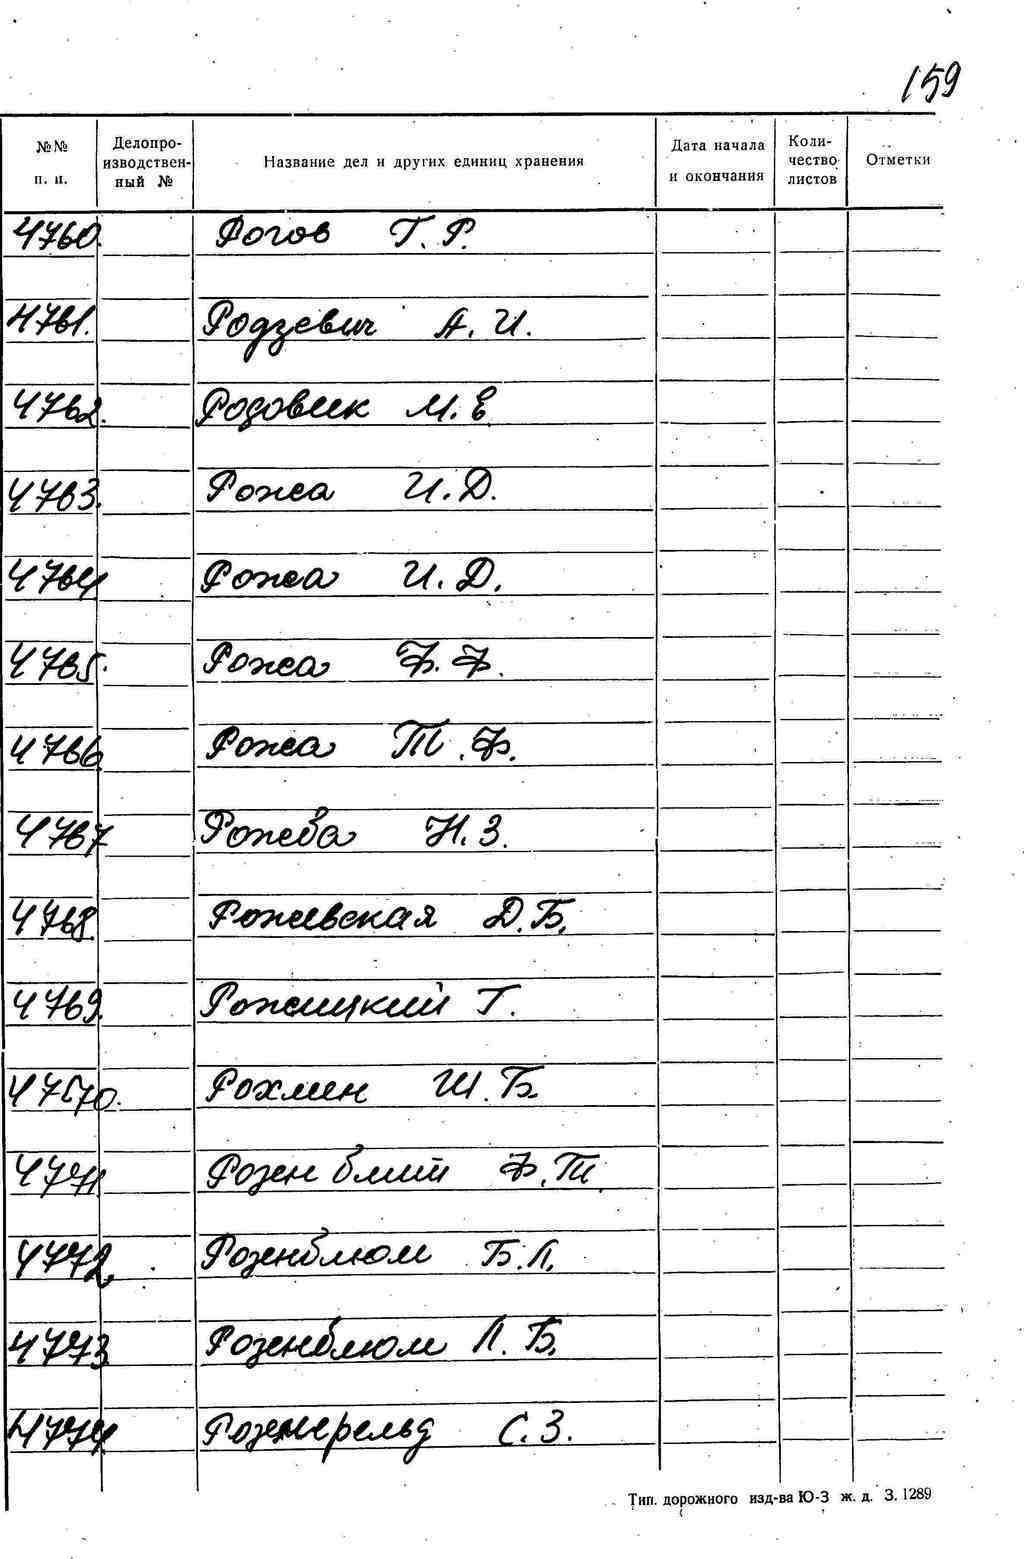 159
№№ п. п.
Делопроизводственный №
Название дел и других единиц хранения
Дата начала и окончания
Количество листов
Отметки
4760. Рогов Г. Р.
4761. Родзевич А. И.
4762. Родовик М. Е.
4763. Рожа И. Д.
4764 Рожа И. Д.
4765. Рожа Ф. Ф.
4766 Рожа Т. Ф.
4767 Рожеба Н. З.
4768. Рожевская Д. Б.
4769. Рожицкий Г.
4770. Рохмин Ш. Б.
4771 Розенблит Ф. Т.
4772. Розенблюм Б. Л.
4773 Розенблюм Л. Б.
4774 С. З.
Тип. дорожного изд-ва Ю-З ж. д. З. 1289